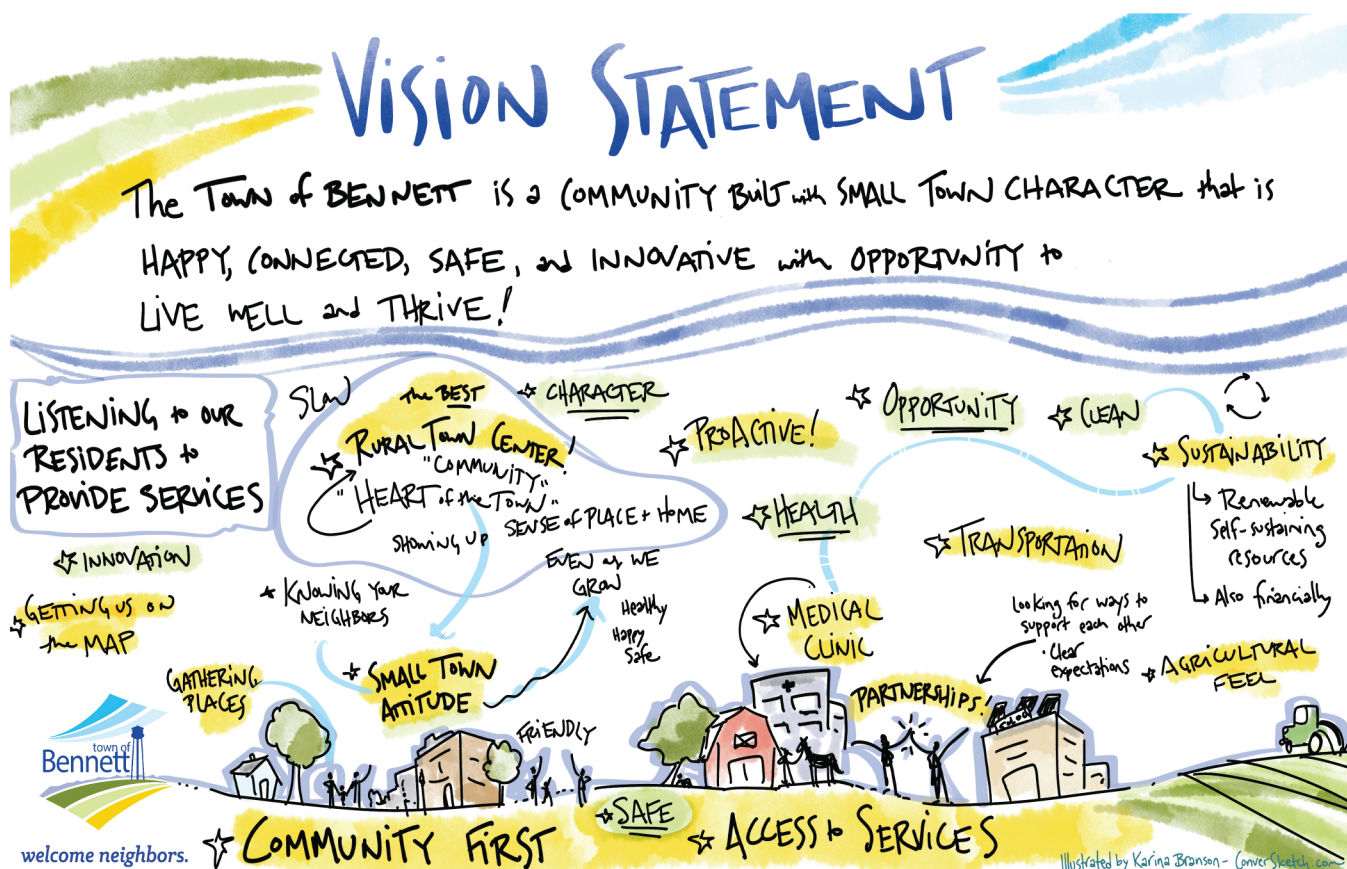 VISION STATEMENT
The TOWN of BENNETT is a COMMUNITY BUILT with SMALL TOWN CHARACTER that is
HAPPY, CONNECTED, SAFE, and INNOVATIVE with OPPORTUNITY to
LIVE WELL and THRIVE!
LISTENING to OUR
RESIDENTS to
PROVIDE SERVICES
SLOW
the BEST
RURAL TOWN CENTER!
"COMMUNITY"
"HEART of the TOWN"
SENSE of PLACE + HOME
SHOWING UP
CHARACTER
PROACTIVE!
OPPORTUNITY
CLEAN
SUSTAINABILITY
Renewable
Self-sustaining
resources
Also financially
HEALTH
TRANSPORTATION
INNOVATION
GETTING US ON
the MAP
KNOWING YOUR
NEIGHBORS
EVEN as WE
GROW
Healthy
Happy
Safe
MEDICAL
CLINIC
Looking for ways to
support each other
· Clear
expectations
AGRICULTURAL
FEEL
GATHERING
PLACES
SMALL TOWN
ATTITUDE
FRIENDLY
PARTNERSHIPS!
School
town of
Bennett
welcome neighbors.
COMMUNITY FIRST
SAFE
ACCESS to SERVICES
Illustrated by Karina Branson - ConverSketch.com